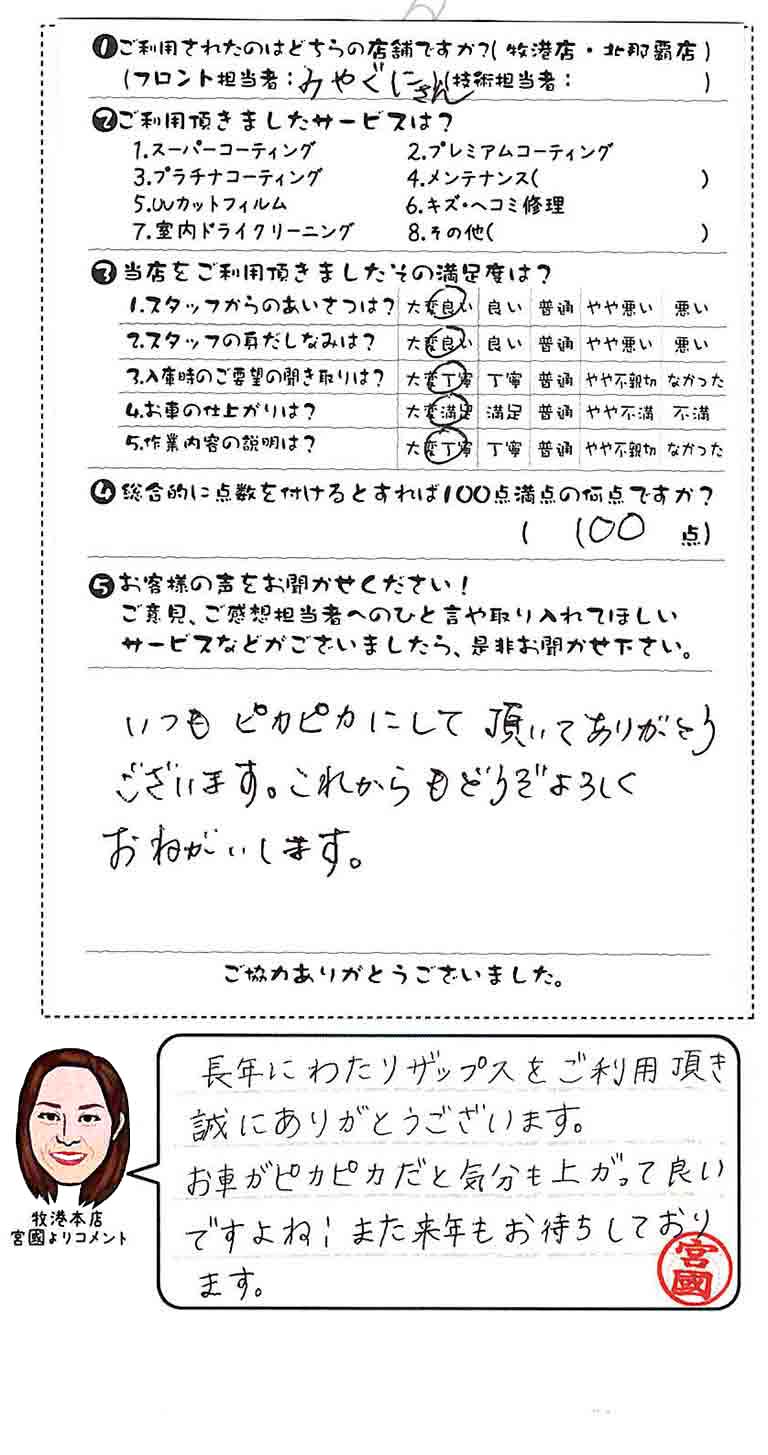 ❶ご利用されたのはどちらの店舗ですか?(牧港店・北那覇店)
(フロント担当者:みやぐにさん)(技術担当者: )
❷ご利用頂きましたサービスは?
1.スーパーコーティング 2.プレミアムコーティング
3.プラチナコーティング 4.メンテナンス( )
5.UVカットフィルム 6.キズ・ヘコミ修理
7.室内ドライクリーニング 8.その他( )
❸当店をご利用頂きましたその満足度は?
1.スタッフからのあいさつは? 大変良い 良い 普通 やや悪い 悪い
2.スタッフの身だしなみは? 大変良い 良い 普通 やや悪い 悪い
3.入庫時のご要望の聞き取りは? 大変丁寧 丁寧 普通 やや不親切 なかった
4.お車の仕上がりは? 大変満足 満足 普通 やや不満 不満
5.作業内容の説明は? 大変丁寧 丁寧 普通 やや不親切 なかった
❹総合的に点数を付けるとすれば100点満点の何点ですか?
( 100 点)
❺お客様の声をお聞かせください!
ご意見、ご感想担当者へのひと言や取り入れてほしい
サービスなどがございましたら、是非お聞かせ下さい。
いつも ピカピカにして 頂いてありがとう
ございます。これからもどうぞよろしく
おねがいします。
ご協力ありがとうございました。
長年にわたりザップスをご利用頂き
誠にありがとうございます。
お車がピカピカだと気分も上がって良い
ですよね! また来年もお待ちしており
ます。
宮國
牧港本店
宮國よりコメント